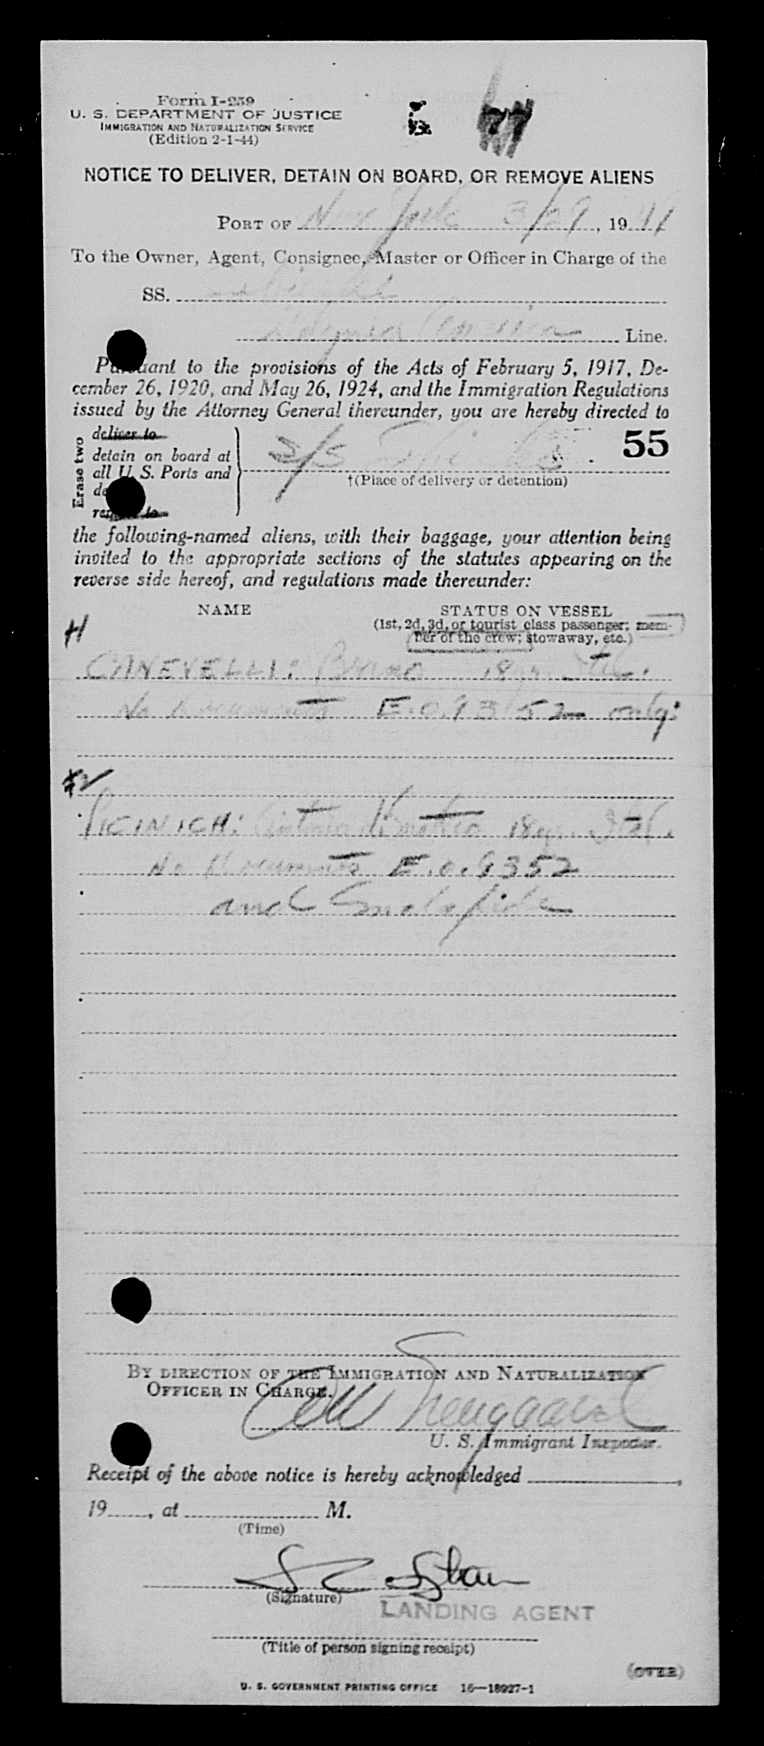 Form I-259
U. S. DEPARTMENT OF JUSTICE
IMMIGRATION AND NATURALIZATION SERVICE
(Edition 2-1-44)
77
NOTICE TO DELIVER, DETAIN ON BOARD, OR REMOVE ALIENS
PORT OF New York 3/29, 19
To the Owner, Agent, Consignee, Master or Officer in Charge of the
SS.
Line.
Pursuant to the provisions of the Acts of February 5, 1917, De-
cember 26, 1920, and May 26, 1924, and the Immigration Regulations
issued by the Attorney General thereunder, you are hereby directed to
Erase two
deliver to
detain on board at
all U. S. Ports and
55
†(Place of delivery or detention)
the following-named aliens, with their baggage, your attention being
invited to the appropriate sections of the statutes appearing on the
reverse side hereof, and regulations made thereunder:
NAME
STATUS ON VESSEL
(1st, 2d, 3d, or tourist class passenger; mem-
ber of the crew; stowaway, etc.)
H
CANEVELLI: Bruno 18yr.
No Documents E.O. 9352 only;
PICINICH: 18yr. Ital.
No Documents E.O. 9352
and
BY DIRECTION OF THE IMMIGRATION AND NATURALIZATION
OFFICER IN CHARGE.
U. S. Immigrant Inspector.
Receipt of the above notice is hereby acknowledged
19, at M.
(Time)
(Signature)
LANDING AGENT
(Title of person signing receipt)
(OVER)
U. S. GOVERNMENT PRINTING OFFICE 16—18927-1